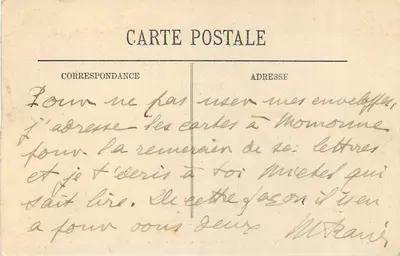 CARTE POSTALE
CORRESPONDANCE
ADRESSE
Pour ne pas user mes enveloppes,
j'adresse les cartes à Momonne
pour la remercier de ses lettres
et je t'écris à toi Michel qui
sait lire. De cette façon il y en
a pour vous deux